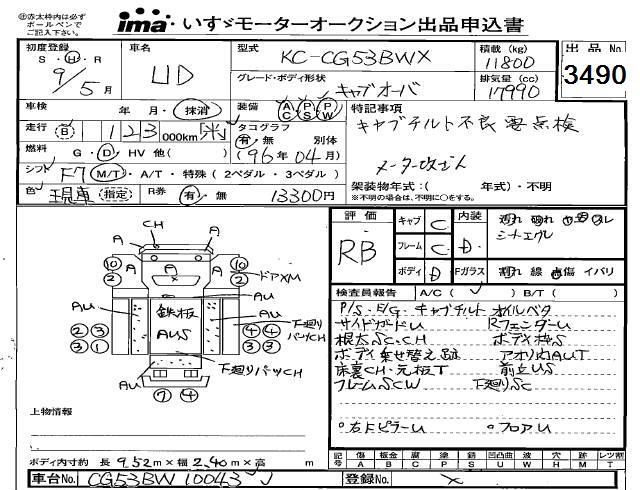 ㊟赤太枠内は必ず
ボールペンで
ご記入下さい。
ima いすゞモーターオークション出品申込書
初度登録 S・H・R 9/5月
車名 UD
型式 KC-CG53BWX
積載(kg) 11800
出品No. 3490
グレード・ボディ形状 キャブオーバ
排気量(cc) 17990
車検 年 月・抹消
装備 AC PS PW
特記事項
キャブチルト不良 要点検
走行 B 123000km
タコグラフ 有・無 別体
(96年04月)
燃料 G・D・HV 他( )
メーター改ざん
シフト F7 M/T・A/T・特殊(2ペダル・3ペダル)
色 現車 指定
R券 有・無 13300円
架装物年式:( 年式)・不明
※不明の場合は、不明に○をする。
評価 RB
キャブ C
内装 D
フレーム C
ボディ D
Fガラス 割れ 線 点傷 イバリ
シートエグレ
検査員報告 A/C( ✓ ) B/T( )
P/S・E/G・キャブチルト オイルベタ
サイドガードU RフェンダーU
根太SC・CH ボディ枠S
ボディ乗せ替え跡 アオリ内AUT
床裏CH・元板T 前立US
フレームSCW 下廻りSC
○右ドピラーU ○フロアU
CH
A A
A A
⑩ ⑩
② ② ドアXM
AU AU
鉄板
AUS
② ③ ④ ④ 下廻り
③ ① ③ ③ パーツCH
下廻りパーツCH
AU
⑦ ④
上物情報
ボディ内寸約 長 9.52m×幅 2.40m×高 m
記号 傷 A 板金 B 腐 C 塗 P 錆 S 凹凸曲 U 波 W 穴 H 跡 M レツ割 T
車台No. CG53BW 10043
登録No. ×